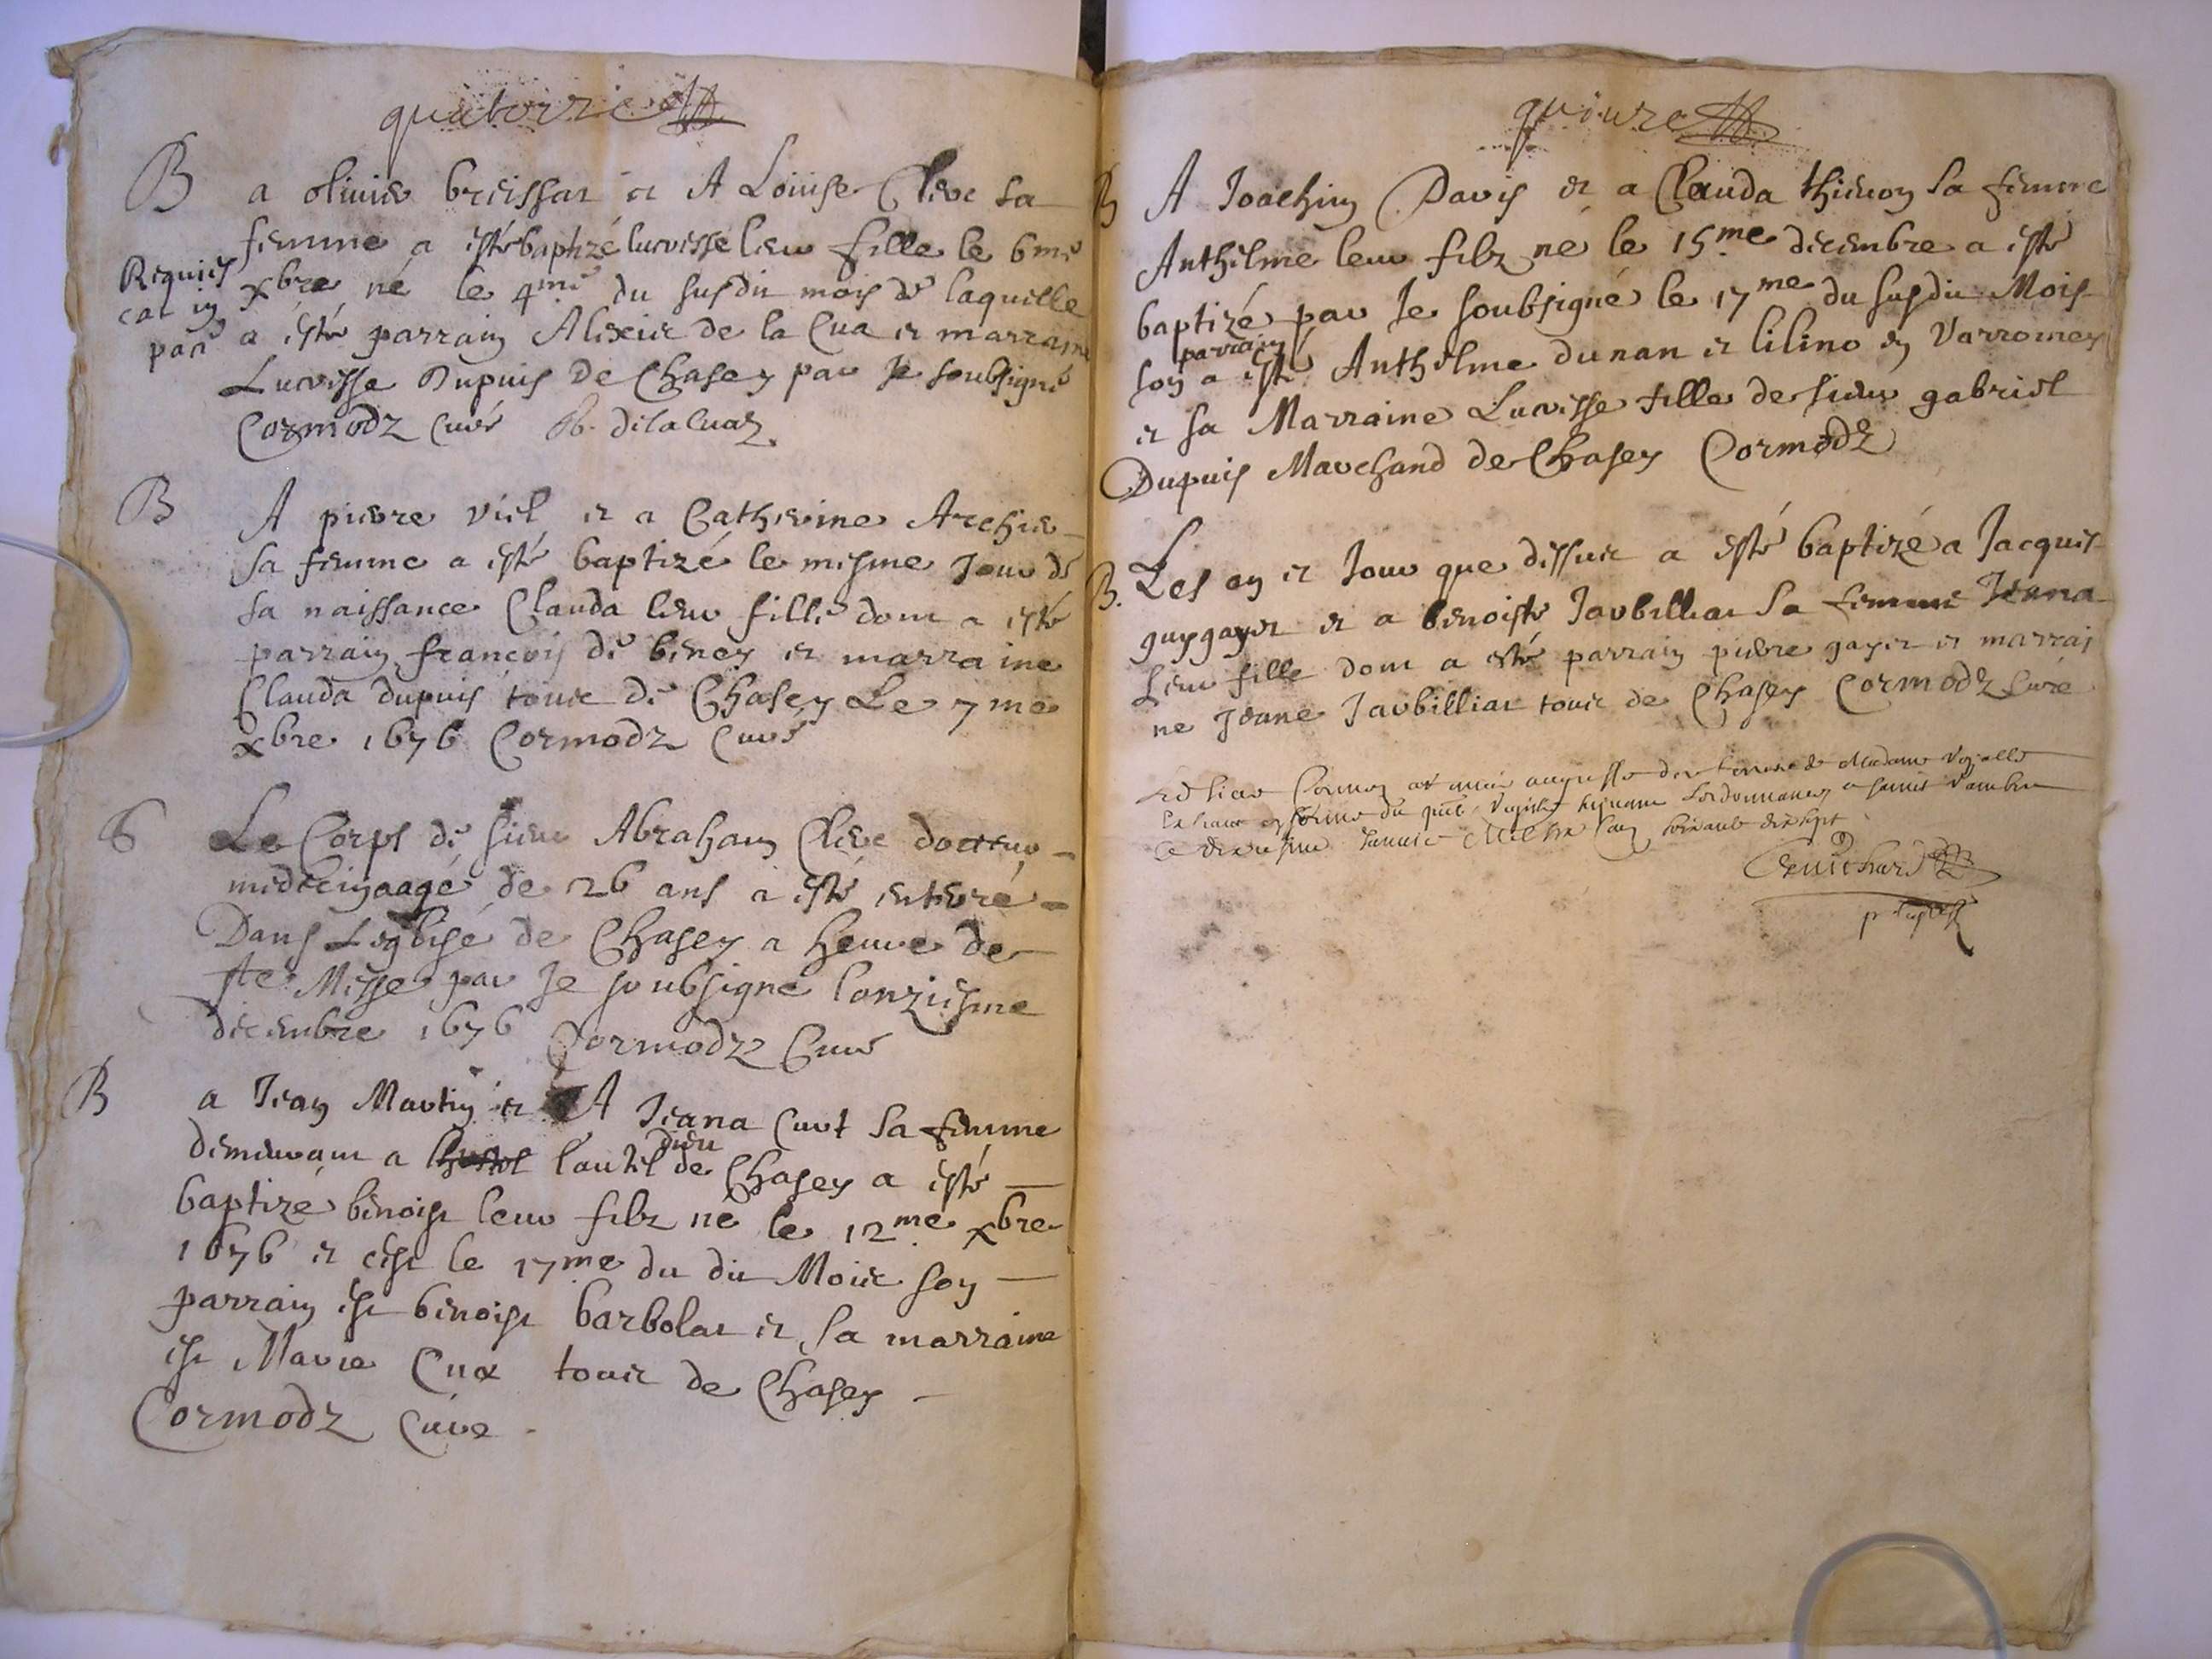 quatorze
B
a olivier breissat et A Louise Cleve sa
femme a esté baptizé lucresse leur fille le 6me
Requies
cat in
pace
xbre né le 4me du susdit mois de laquelle
a esté parrain Alexis de la Cua et marraine
Lucresse Dupuis De Chasey par Je soubsigné
Cormodz curé B. delacuaz
B
A pierre viel et a Catherine Archier
sa femme a esté baptizé le mesme Jour de
sa naissance Clauda leur fille dont a esté
parrain francois de beney et marraine
Clauda dupuis touts de Chasey Le 7me
xbre 1676 Cormodz Curé
S
Le Corps de sieur Abraham Cleve docteur
medecin aagé de 26 ans a esté enterré
Dans Leglise de Chasey a heure de
ste Messe par Je soubsigné lonziesme
decembre 1676 Cormodz Curé
B
a Jean Martin et A Jeana Curt sa femme
demeurant a l'autel dieu de Chasey a esté
baptizé benoist leur filz né le 12me xbre
1676 et cest le 17me du dit Mois son
parrain est benoist barbolat et sa marraine
est Marie Cua touts de Chasey
Cormodz Curé
quinze
B
A Joachim Davis et a Clauda thienon sa femme
Anthelme leur filz né le 15me decembre a esté
baptizé par Je soubsigné le 17me du susdit Mois
son parrain a esté Anthelme dunan et lilino en Varromey
et sa Marraine Lucresse fille de sieur gabriel
Dupuis Marchand de Chasey Cormodz
B.
Les an et Jour que dessus a esté baptizé a Jacques
guygayet et a benoiste Jarbilliat sa femme Jeana
leur fille dont a esté parrain pierre gayet et marrai
ne Jeane Jarbilliat touts de Chasey Cormodz Curé
sieur Cormoz de Madame
du